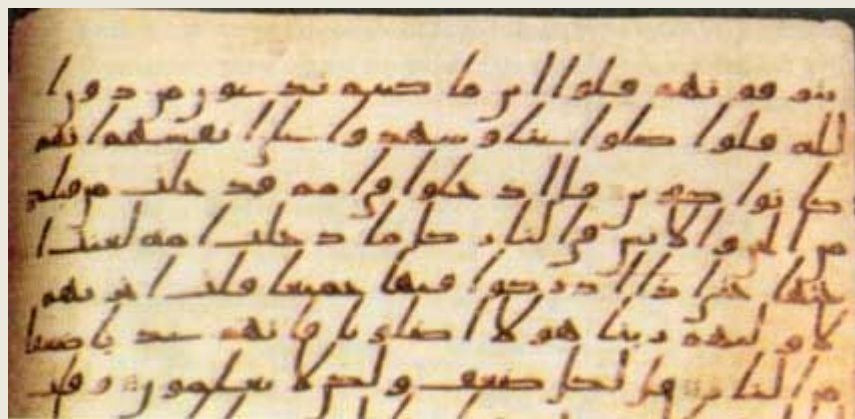 يتوفونهم قلوا اين ما كنتم تدعون من دون ا
لله قلوا ضلوا عنا وشهدوا على انفسهم انهم
كانوا كفرين قال ادخلوا في امم قد خلت من قبلكم
من الجن والانس في النار كلما دخلت امه لعنت ا
ختها حتى اذا ادركوا فيها جميعا قلت اخريهم
لاوليهم ربنا هولا اضلونا فاتهم عذبا ضعفا
من النار قل لكل ضعف ولكن لا تعلمون وقلت